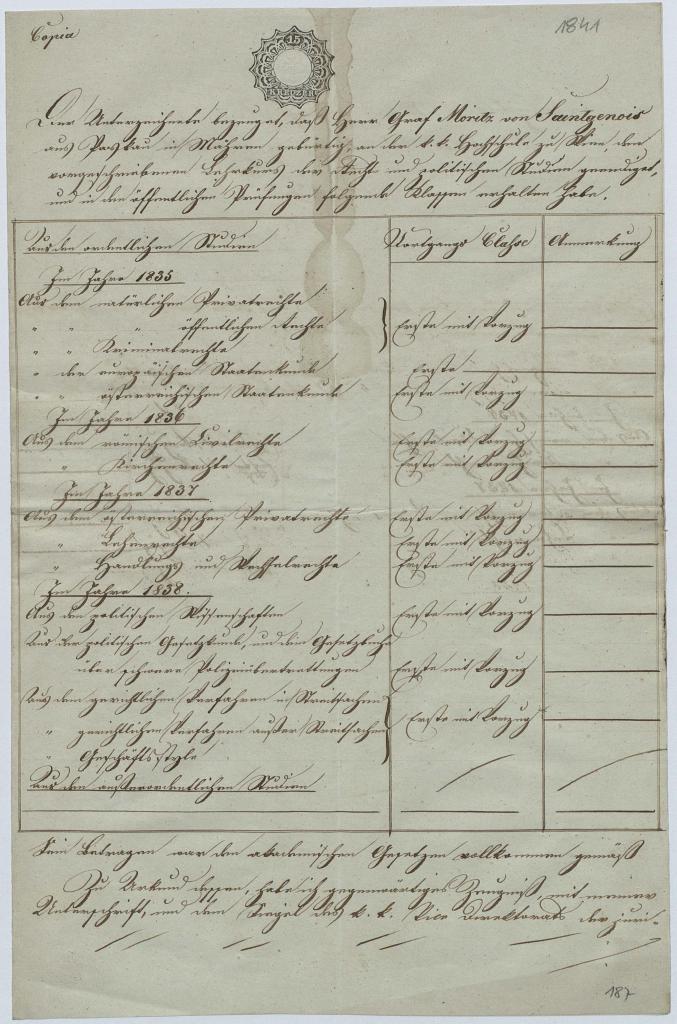 Copia
1841
15
KREUZER
Der Unterzeichnete bezeuget, daß Herr Graf Moritz von Saintgenois
aus Paskau in Mähren gebürtig, an der k. k. Hochschule zu Wien, den
vorgeschriebenen Lehrkurs der Recht und politischen Studien geendiget,
und in den öffentlichen Prüfungen folgende Klassen erhalten habe.
Aus den ordentlichen Studien Fortgangs Classe Anmerkung
Im Jahre 1835
Aus dem natürlichen Privatrechte
" " " öffentlichen Rechte Erste mit Vorzug
" " Kriminalrechte
" der europäischen Staatenkunde Erste
" " österreichischen Staatenkunde Erste mit Vorzug
Im Jahre 1836
Aus dem römischen Civilrechte Erste mit Vorzug
" Kirchenrechte Erste mit Vorzug
Im Jahre 1837
Aus dem österreichischen Privatrechte Erste mit Vorzug
" Lehenrechte Erste mit Vorzug
" Handlungs und Wechselrechte Erste mit Vorzug
Im Jahre 1838.
Aus den politischen Wissenschaften Erste mit Vorzug
Aus der politischen Gesetzkunde, und dem Gesetzbuche
über schwere Polizeiübertrettungen Erste mit Vorzug
Aus dem gerichtlichen Verfahren in Streitsachen
" gerichtlichen Verfahren außer Streitsachen Erste mit Vorzug
" Geschäftsstyle
Aus den außerordentlichen Studien
Sein Betragen war den akademischen Gesetzen vollkommen gemäß
Zu Urkund dessen, habe ich gegenwärtiges Zeugniß, mit meiner
Unterschrift, und dem Siegel des k. k. Vice Direktorats der juri-
187